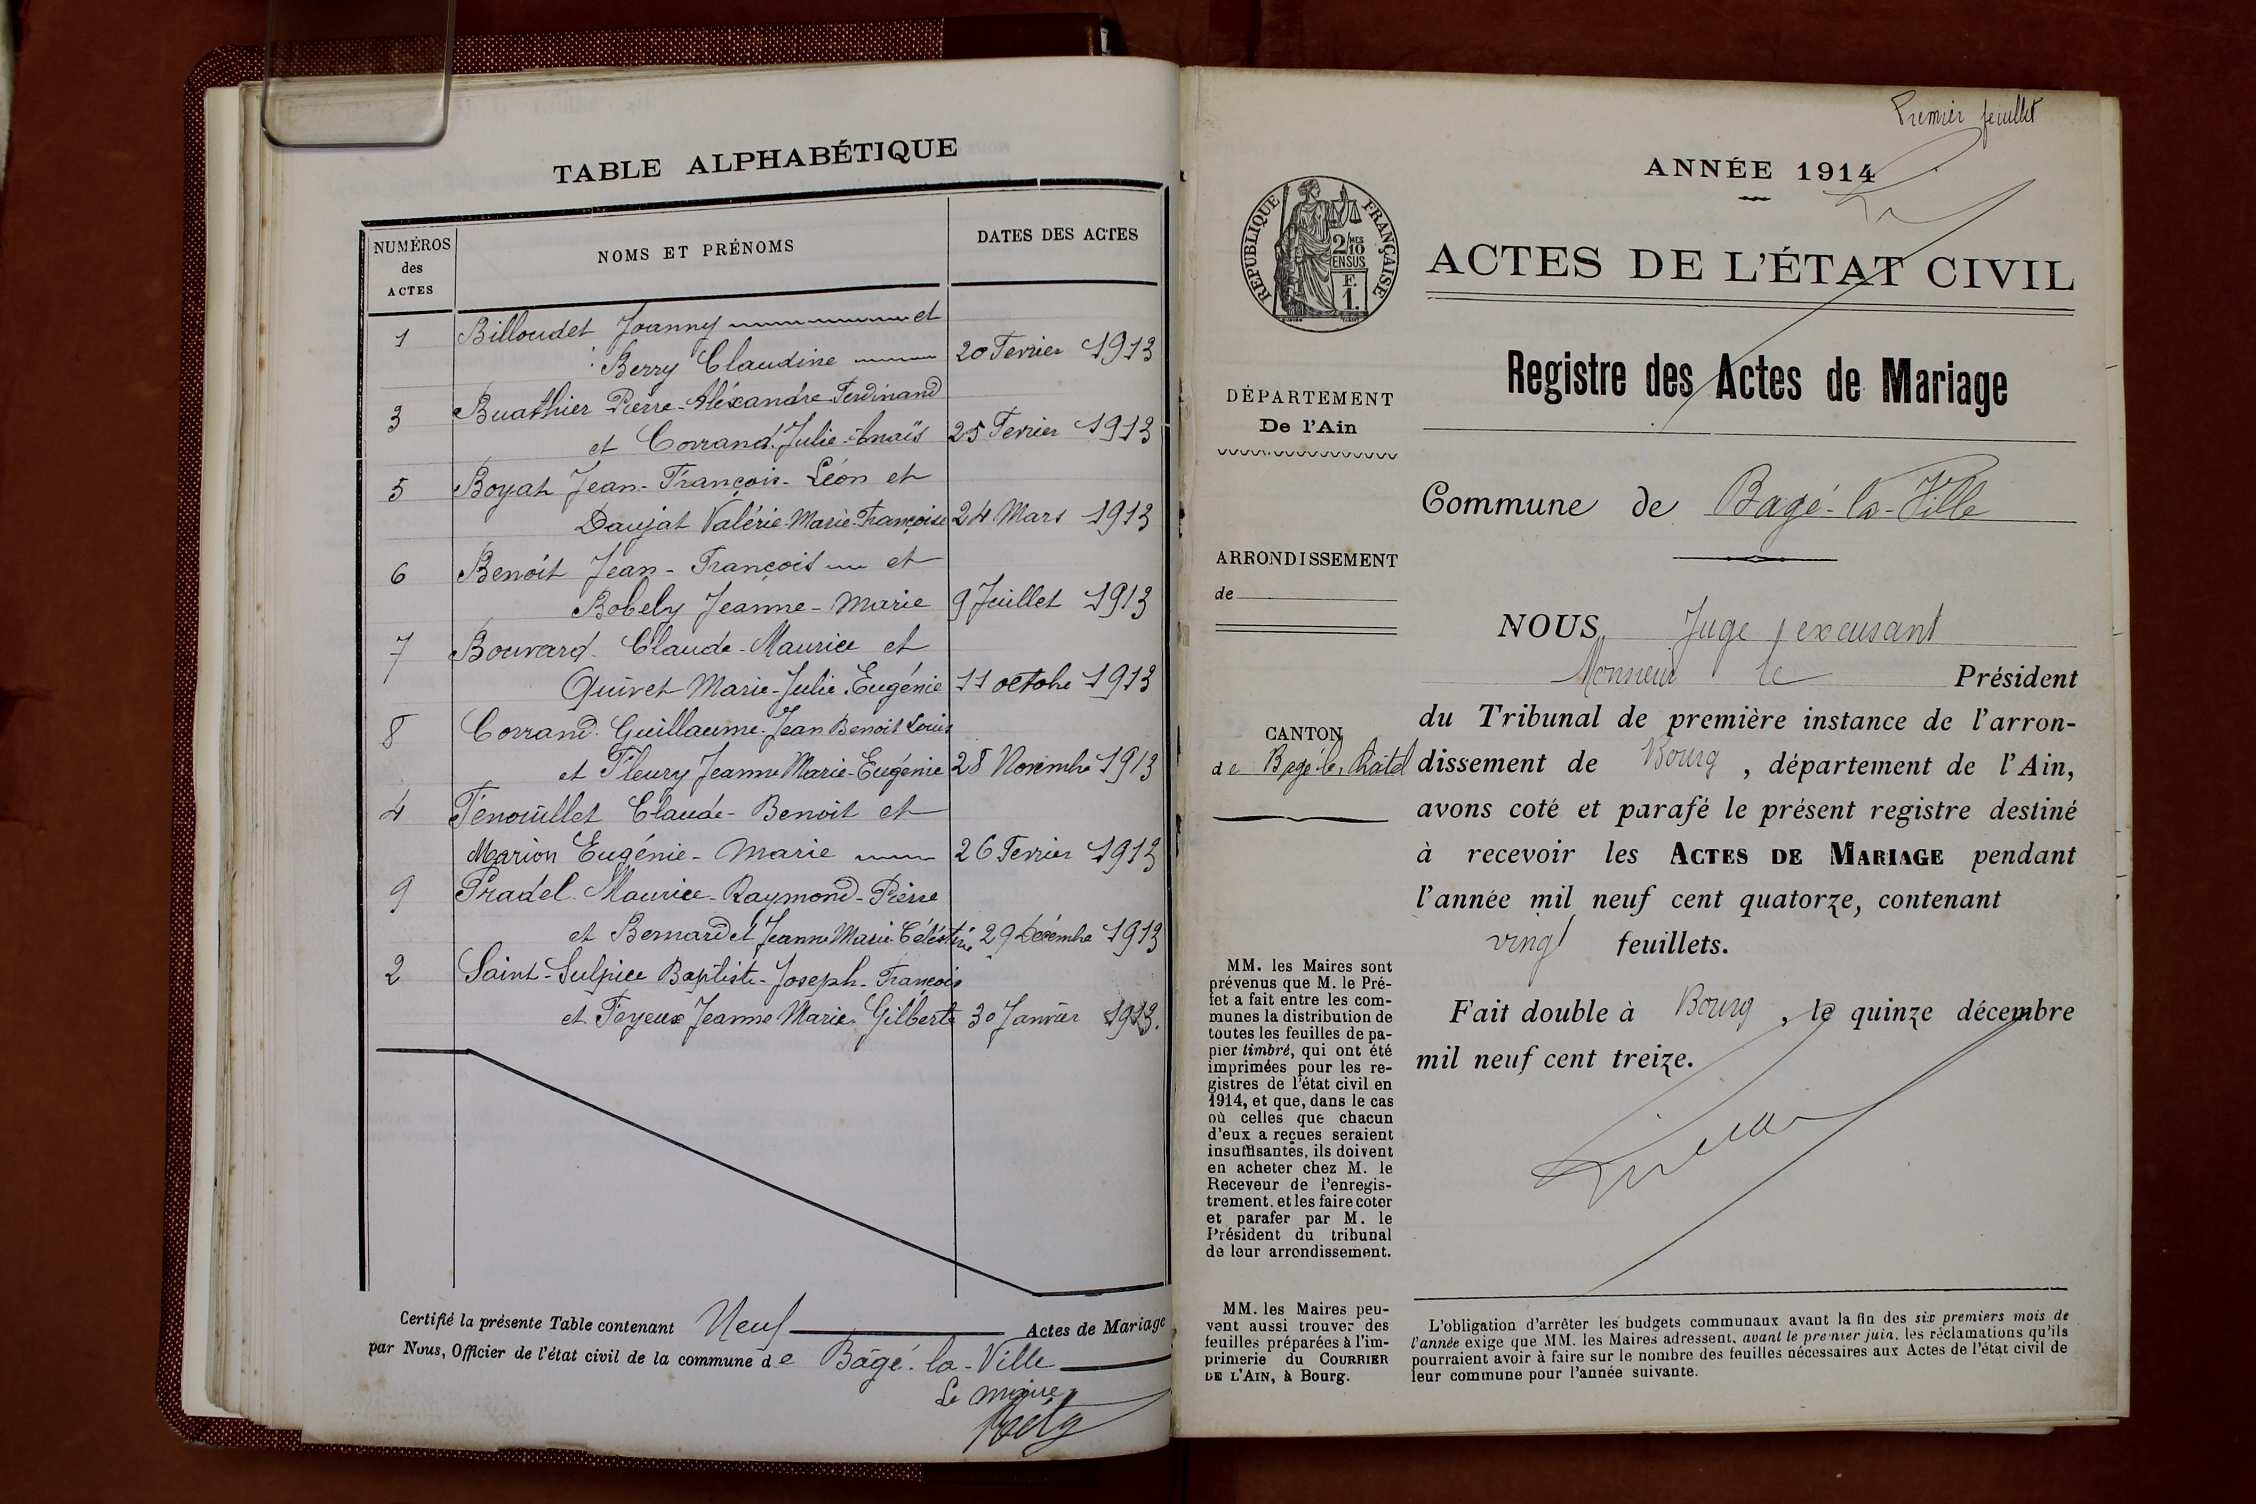 TABLE ALPHABÉTIQUE
NUMÉROS
des
ACTES
NOMS ET PRÉNOMS
DATES DES ACTES
1 Billoudet Joanny et
Berry Claudine 20 Fevrier 1913
3 Buathier Pierre-Aléxandre-Ferdinand
et Corrand Julie-Anaïs 25 Fevrier 1913
5 Boyat Jean-François-Léon et
Daujat Valérie-Marie-Françoise 24 Mars 1913
6 Benoit Jean-François et
Bobely Jeanne-Marie 9 Juillet 1913
7 Bouvard Claude-Maurice et
Quivet Marie-Julie-Eugénie 11 octobre 1913
8 Corrand Guillaume-Jean Benoit Louis
et Fleury Jeanne Marie-Eugénie 28 Novembre 1913
4 Fenouillet Claude-Benoit et
Marion Eugénie-Marie 26 Fevrier 1913
9 Pradel Maurice-Raymond-Pierre
et Bernardet Jeanne Marie Céléstine 29 Décembre 1913
2 Saint-Sulpice Baptiste-Joseph-François
et Feyeux Jeanne Marie Gilberte 30 Janvier 1913.
Certifié la présente Table contenant Neuf Actes de Mariage
par Nous, Officier de l'état civil de la commune de Bâgé-la-Ville
Le maire
Premier feuillet
ANNÉE 1914
RÉPUBLIQUE FRANÇAISE
2/10 MES
EN SUS
F.
1.
ACTES DE L'ÉTAT CIVIL
Registre des Actes de Mariage
DÉPARTEMENT
De l'Ain
Commune de Bagé-la-Ville
ARRONDISSEMENT
de
NOUS, Juge, excusant
Monsieur le Président
du Tribunal de première instance de l'arron-
CANTON
de Bagé-le-Châtel
dissement de Bourg, département de l'Ain,
avons coté et parafé le présent registre destiné
à recevoir les ACTES DE MARIAGE pendant
l'année mil neuf cent quatorze, contenant
vingt feuillets.
Fait double à Bourg, le quinze décembre
mil neuf cent treize.
MM. les Maires sont
prévenus que M. le Pré-
fet a fait entre les com-
munes la distribution de
toutes les feuilles de pa-
pier timbré, qui ont été
imprimées pour les re-
gistres de l'état civil en
1914, et que, dans le cas
où celles que chacun
d'eux a reçues seraient
insuffisantes, ils doivent
en acheter chez M. le
Receveur de l'enregis-
trement, et les faire coter
et parafer par M. le
Président du tribunal
de leur arrondissement.
MM. les Maires peu-
vent aussi trouver des
feuilles préparées à l'im-
primerie du COURRIER
DE L'AIN, à Bourg.
L'obligation d'arrêter les budgets communaux avant la fin des six premiers mois de
l'année exige que MM. les Maires adressent, avant le premier juin, les réclamations qu'ils
pourraient avoir à faire sur le nombre des feuilles nécessaires aux Actes de l'état civil de
leur commune pour l'année suivante.